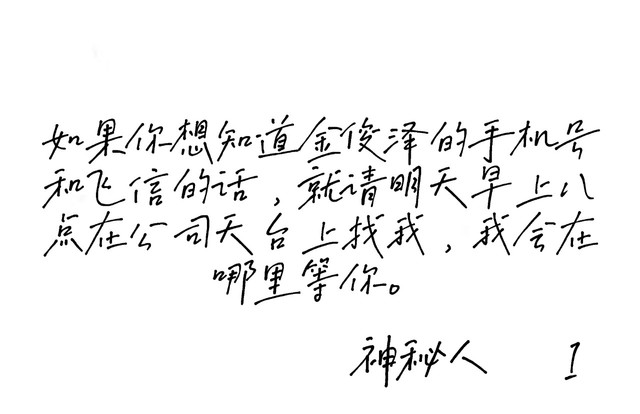 如果你想知道金俊泽的手机号
和飞信的话，就请明天早上八
点在公司天台上找我，我会在
哪里等你。
神秘人 I